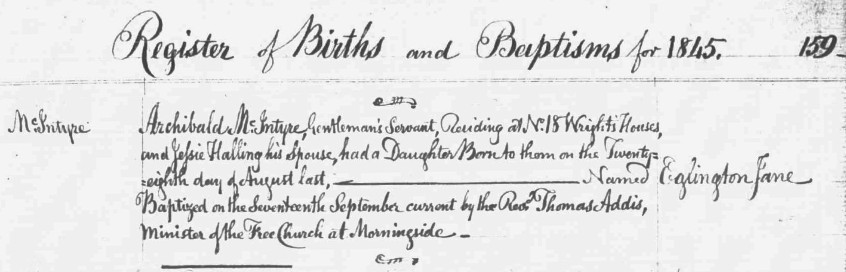 Register of Births and Baptisms for 1845. 159
McIntyre
Archibald McIntyre, Gentleman's Servant, Residing at No. 18 Wright's Houses,
and Jessie Halling his Spouse, had a Daughter Born to them on the Twenty=
=eighth day of August last, ———— Named Eglington Jane
Baptized on the Seventeenth September current by the Revd. Thomas Addis,
Minister of the Free Church at Morningside —